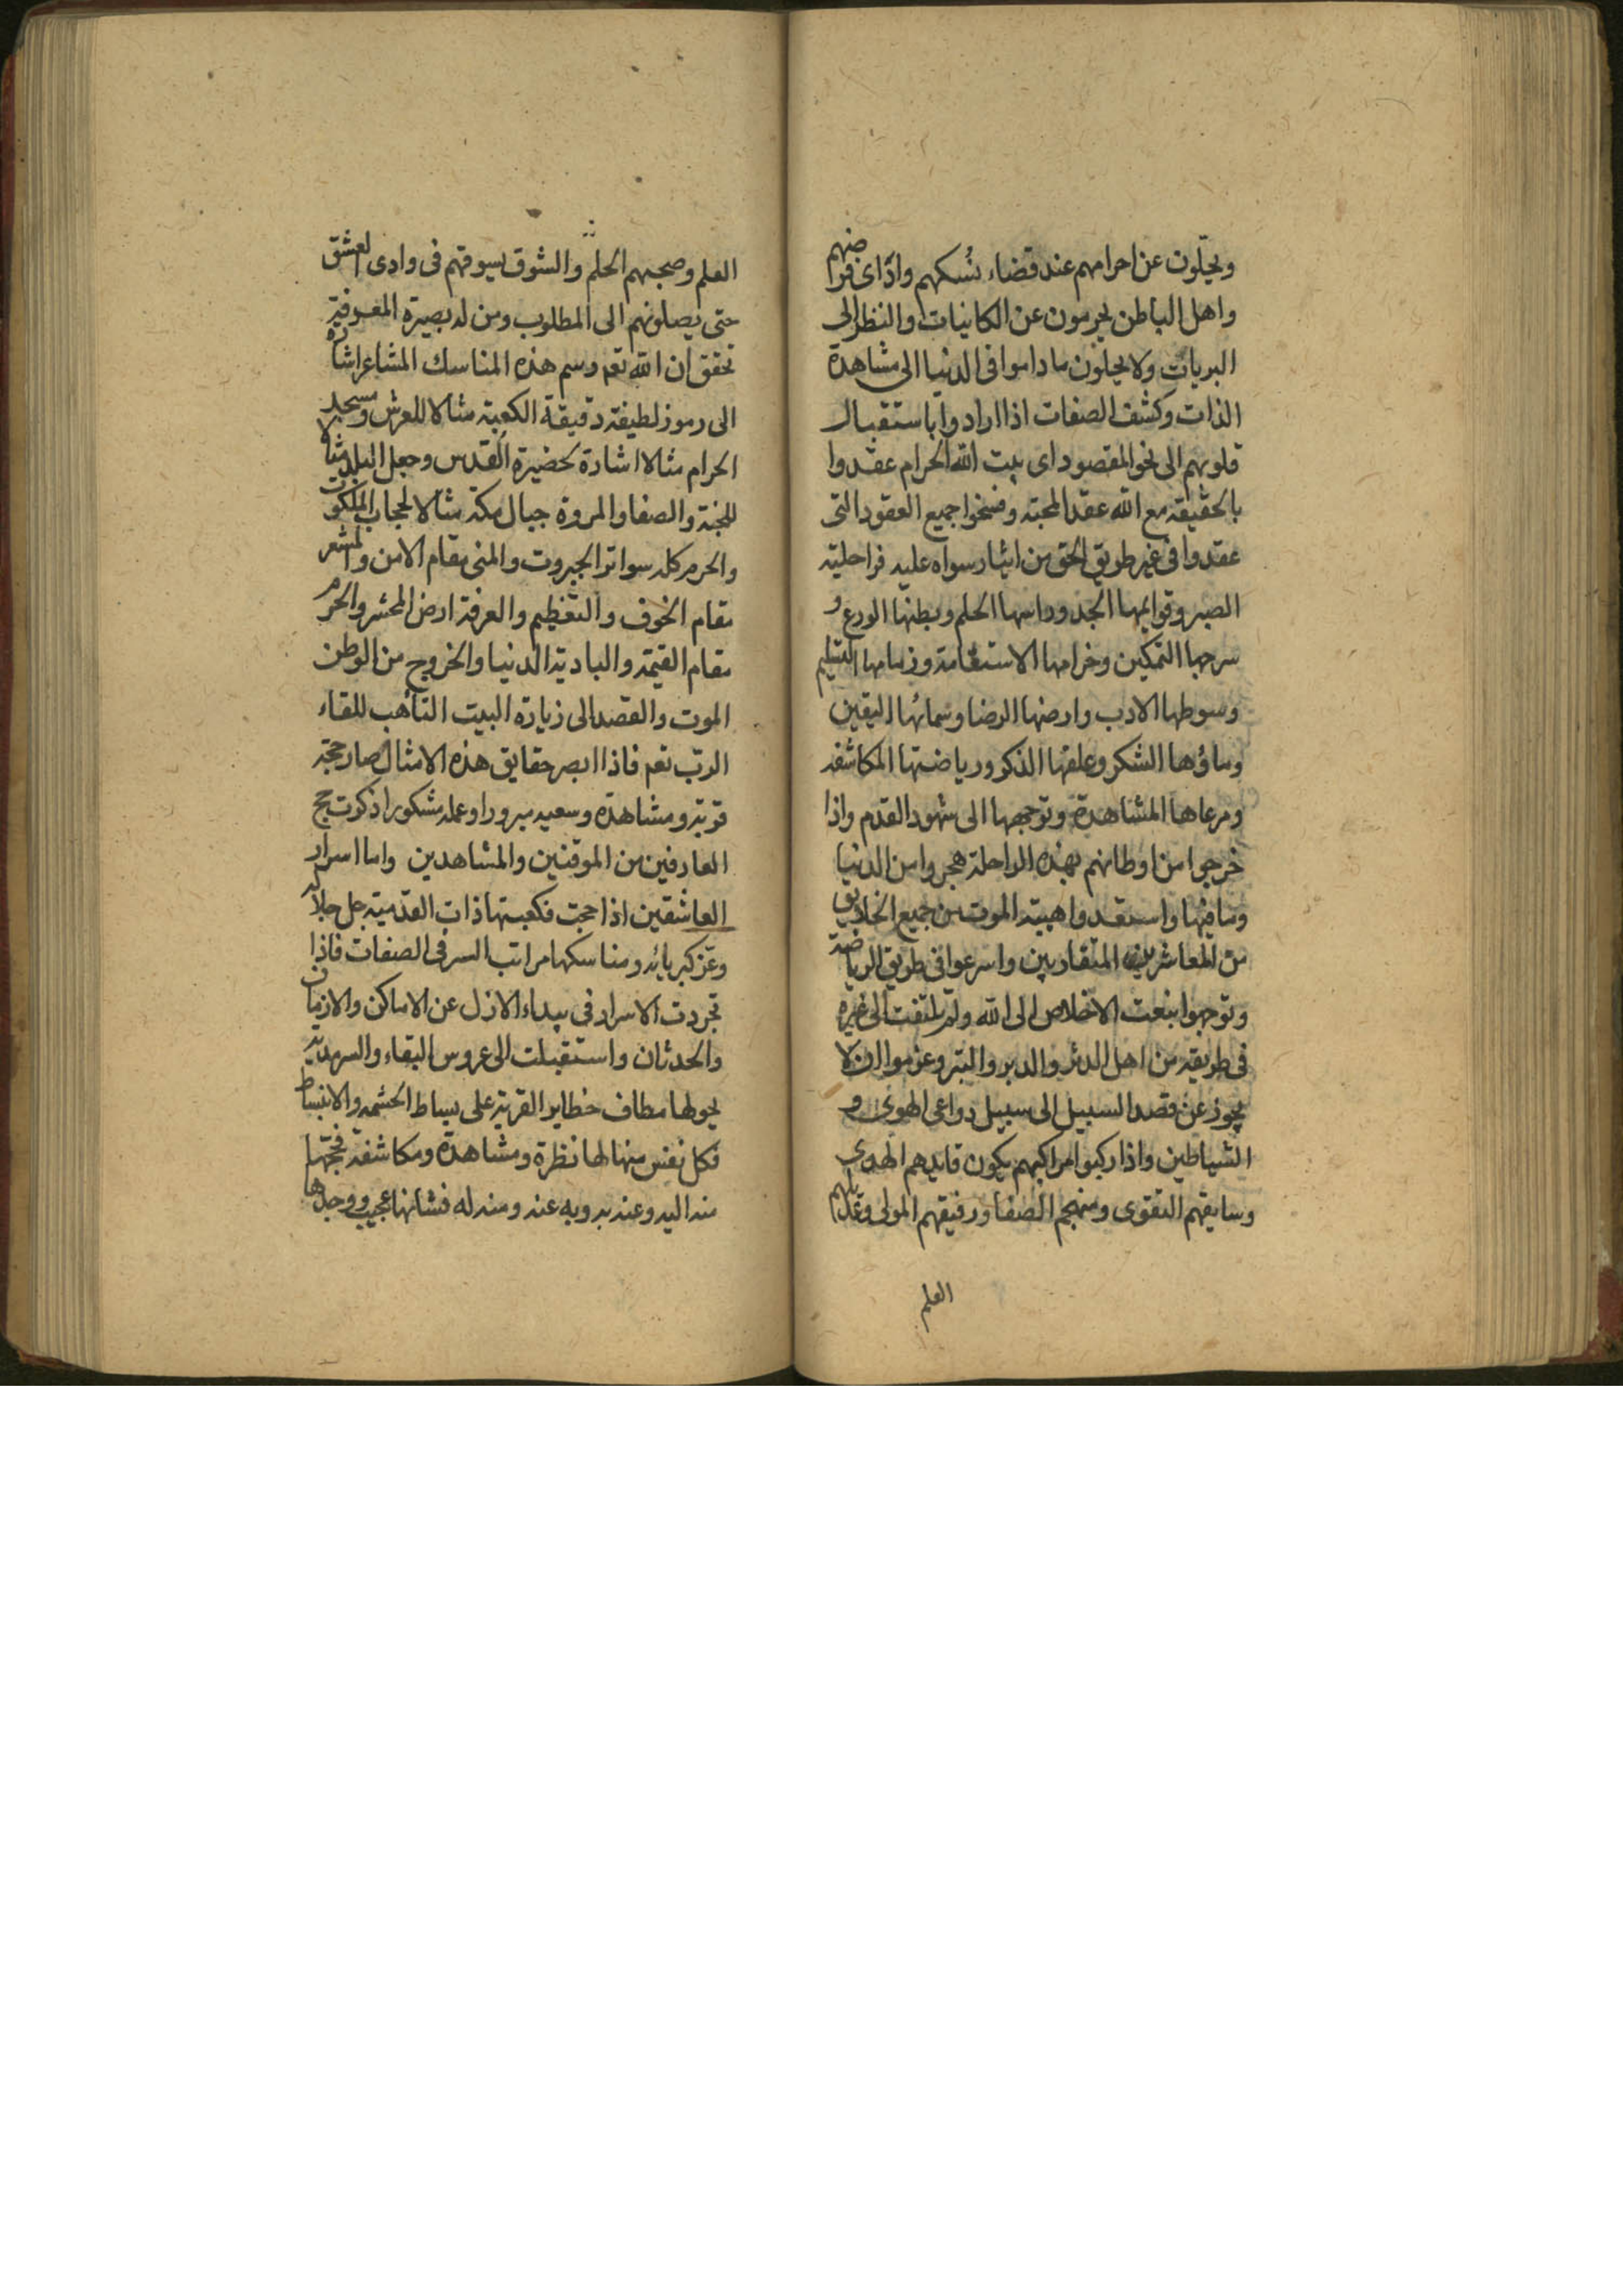 ويحلّون عن احرامهم عند قضاء نُسكهم واذاى فرايضهم
واهل الباطن يحرمون عن الكاينات والنظر الى
البريات ولا يحلون ما داموا فى الدنيا الى مشاهدة
الذات وكشف الصفات اذا ارادوا باستقبال
قلوبهم الى نحو المقصود اى بيت الله الحرام عقدوا
بالحقيقة مع الله عقد المحبة وفسخوا جميع العقود التى
عقدوا فى غير طريق الحق من ايثار سواه عليه فراحلته
الصبر وقوايمها الجد وراسها الحلم وبطنها الورع و
سرجها التمكين وخرامها الاستقامة وزمامها التسليم
وسوطها الادب وارضها الرضا وسمائها اليقين
وماؤها الشكر وعلفها الذكر ورياضتها المكاشفه
ومرعاها المشاهدة وتوجهها الى شهود القدم واذا
خرجوا من اوطانهم بهذه الراحلة هجروا من الدنيا
وما فيها واستعدوا هيبة الموت من جميع الخلايق
من المعاشرين المتقاربين واسرعوا فى طريق الرياضة
وتوجهوا بنعت الاخلاص الى الله ولم يلتفت الى غيره
فى طريقه من اهل المدر والدبر والتبر وعزموا ان لا
يجوز عن قصد السبيل الى سبيل دواعى الهوى و
الشياطين واذا ركبوا مراكبهم يكون قايدهم الهدى
وسايقهم التقوى ومنهجم الصفا ورفيقهم المولى وعديلهم
العلم
العلم وصحبهم الحلم والشوق يسوقهم فى وادى العشق
حتى يصلونهم الى المطلوب ومن له بصيرة المعرفة
تحقق ان الله تعم وسم هذه المناسك المشاعر اشارة
الى رموز لطيفة دقيقة الكعبة مثالا للعرش ومسجد
الحرام مثالا اشارة لحضيرة القدس وجعل البلد مثالا
للجنة والصفا والمروة جبال مكة مثالا لحجاب الملكوت
والحرم كله سواتر الجبروت والمنى مقام الامن والمشعر
مقام الخوف والتعظيم والعرفة ارض المحشر والحرم
مقام القيمة والبادية الدنيا والخروج من الوطن
الموت والقصد الى زيارة البيت التأهب للقاء
الرب تعم فاذا ابصر حقايق هذه الامثال صار حجة
قربة ومشاهدة وسعيه مبرورا وعمله مشكورا ذكرت حج
العارفين من الموقنين والمشاهدين واما اسرار
العاشقين اذا حجت فكعبتها ذات القدمية جل جلاله
وعز كبريائه ومناسكها مراتب السر فى الصفات فاذا
تجردت الاسرار فى بيداء الازل عن الاماكن والازمان
والحدثان واستقبلت الى عروس البقاء والسرمدية
يحولها مطاف خطاير القربة على بساط الحشمة والانبساط
فكل نفس منها لها نظرة ومشاهدة ومكاشفة فحجتها
منه اليه وعنه به وبه عنه ومنه له فشانها عجيب ووجدها